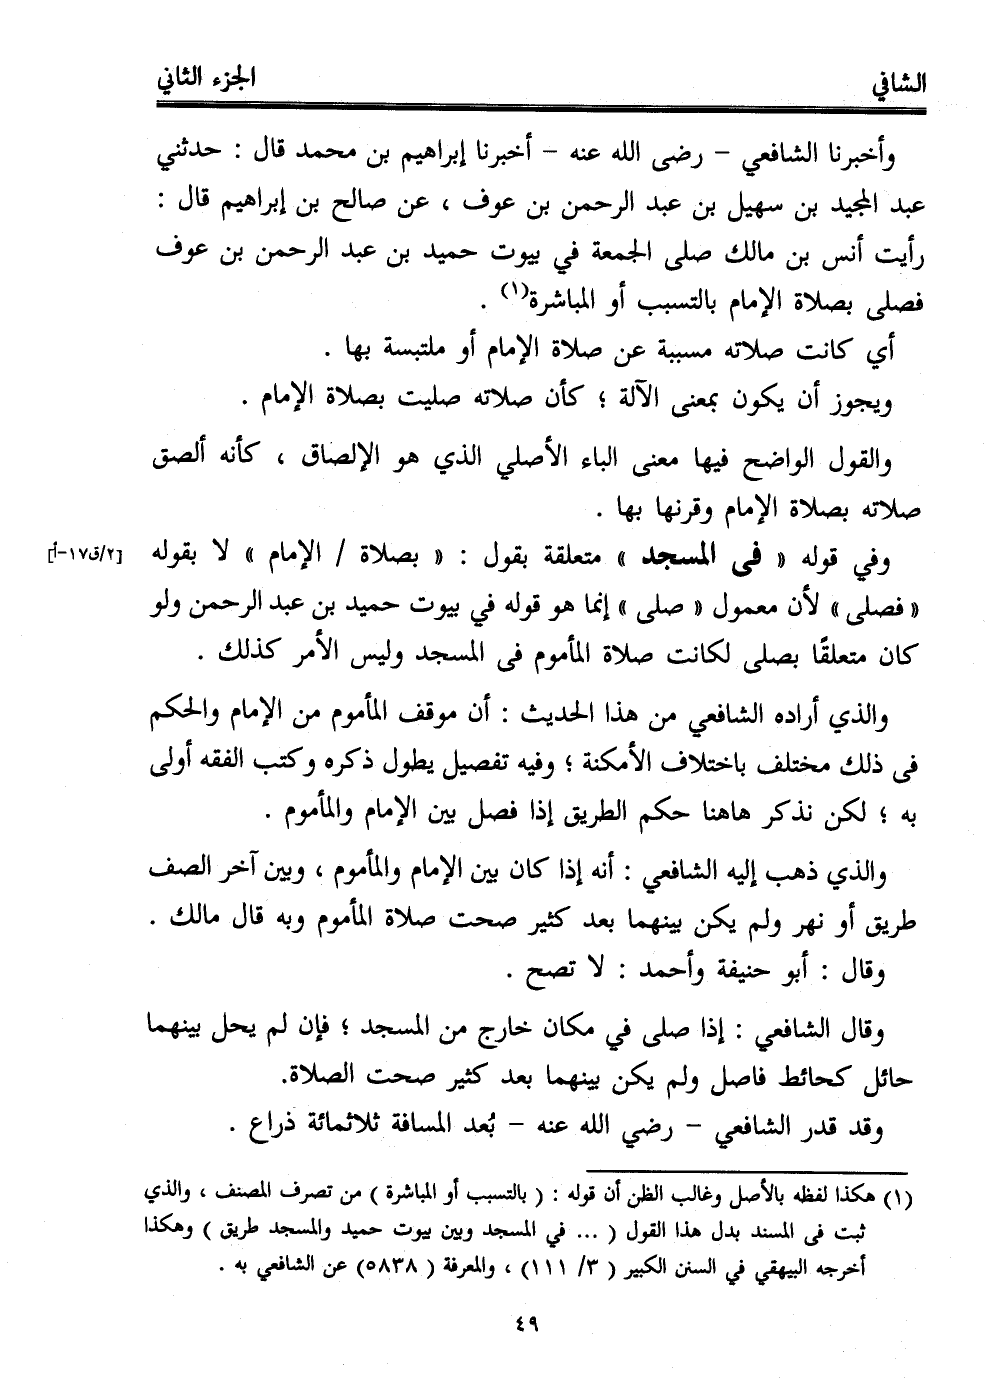 الشافي
الجزء الثاني
وأخبرنا الشافعي - رضى الله عنه - أخبرنا إبراهيم بن محمد قال : حدثني
عبد المجيد بن سهيل بن عبد الرحمن بن عوف ، عن صالح بن إبراهيم قال :
رأيت أنس بن مالك صلى الجمعة في بيوت حميد بن عبد الرحمن بن عوف
فصلى بصلاة الإمام بالتسبب أو المباشرة(١) .
أي كانت صلاته مسببة عن صلاة الإمام أو ملتبسة بها .
ويجوز أن يكون بمعنى الآلة ؛ كأن صلاته صليت بصلاة الإمام .
والقول الواضح فيها معنى الباء الأصلي الذي هو الإلصاق ، كأنه ألصق
صلاته بصلاة الإمام وقرنها بها .
وفي قوله « فى المسجد » متعلقة بقول : « بصلاة / الإمام » لا بقوله [٢/ق١٧-أ]
« فصلى » لأن معمول « صلى » إنما هو قوله في بيوت حميد بن عبد الرحمن ولو
كان متعلقًا بصلى لكانت صلاة المأموم فى المسجد وليس الأمر كذلك .
والذي أراده الشافعي من هذا الحديث : أن موقف المأموم من الإمام والحكم
فى ذلك مختلف باختلاف الأمكنة ؛ وفيه تفصيل يطول ذكره وكتب الفقه أولى
به ؛ لكن نذكر هاهنا حكم الطريق إذا فصل بين الإمام والمأموم .
والذي ذهب إليه الشافعي : أنه إذا كان بين الإمام والمأموم ، وبين آخر الصف
طريق أو نهر ولم يكن بينهما بعد كثير صحت صلاة المأموم وبه قال مالك .
وقال : أبو حنيفة وأحمد : لا تصح .
وقال الشافعي : إذا صلى في مكان خارج من المسجد ؛ فإن لم يحل بينهما
حائل كحائط فاصل ولم يكن بينهما بعد كثير صحت الصلاة.
وقد قدر الشافعي - رضي الله عنه - بُعد المسافة ثلاثمائة ذراع .
(١) هكذا لفظه بالأصل وغالب الظن أن قوله : ( بالتسبب أو المباشرة ) من تصرف المصنف ، والذي
ثبت فى المسند بدل هذا القول ( ... في المسجد وبين بيوت حميد والمسجد طريق ) وهكذا
أخرجه البيهقي في السنن الكبير ( ٣/ ١١١ ) ، والمعرفة ( ٥٨٣٨ ) عن الشافعي به .
٤٩